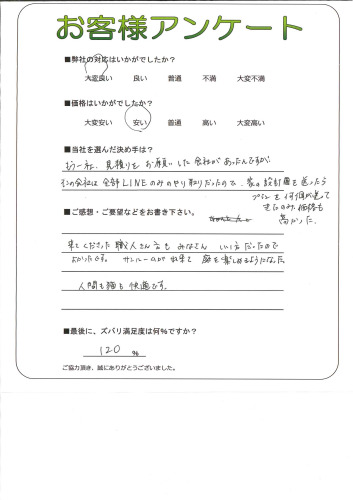 お客様アンケート
■弊社の対応はいかがでしたか？
大変良い 良い 普通 不満 大変不満
■価格はいかがでしたか？
大変安い 安い 普通 高い 大変高い
■当社を選んだ決め手は？
もう一社、見積りをお願いした会社があったんですが、
その会社は全部LINEのみのやり取りだったので、家の設計図を送ったら
プランを何個か送って
きたのみ、価格も
高かった。
■ご感想・ご要望などをお書き下さい。
来てくださった職人さん方もみなさん いい方だったので
よかったです。サンルームが出来て 庭を楽しめるようになった
人間も猫も快適です。
■最後に、ズバリ満足度は何%ですか？
120 %
ご協力頂き、誠にありがとうございました。